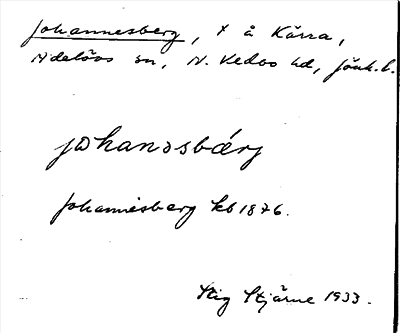 Johannesberg, × å Kärra,
Adelövs sn, N. Vedbo hd, Jönk. l.
johanəsbærj
Johannesberg kb 1876.
Stig Stjärne 1933.